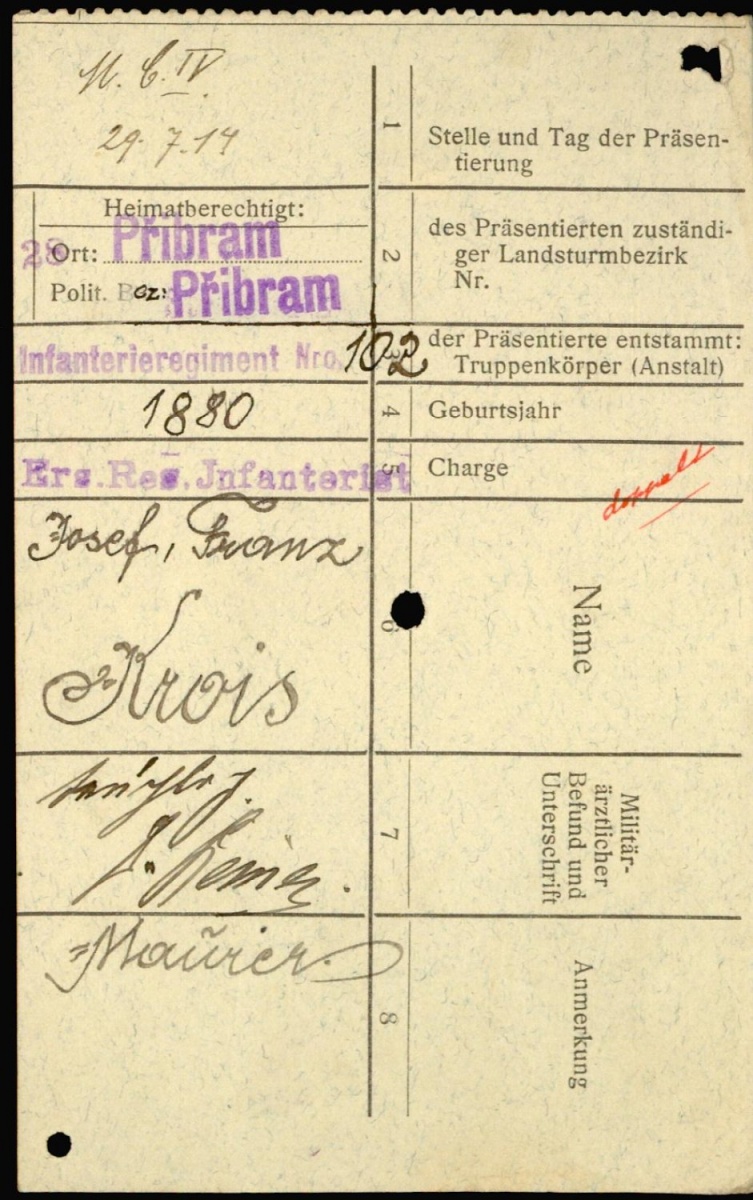 M. C. IV.
29. 7. 14
1
Stelle und Tag der Präsen-
tierung
Heimatberechtigt:
28
Ort: Příbram
Polit. Bez: Příbram
2
des Präsentierten zuständi-
ger Landsturmbezirk
Nr.
Infanterieregiment Nro. 102
3
der Präsentierte entstammt:
Truppenkörper (Anstalt)
1880
4
Geburtsjahr
Ers. Res. Infanterist
5
Charge
doppelt
Josef, Franz
Krois
6
Name
tauglich
7
Militär-
ärztlicher
Befund und
Unterschrift
Maurer.
8
Anmerkung